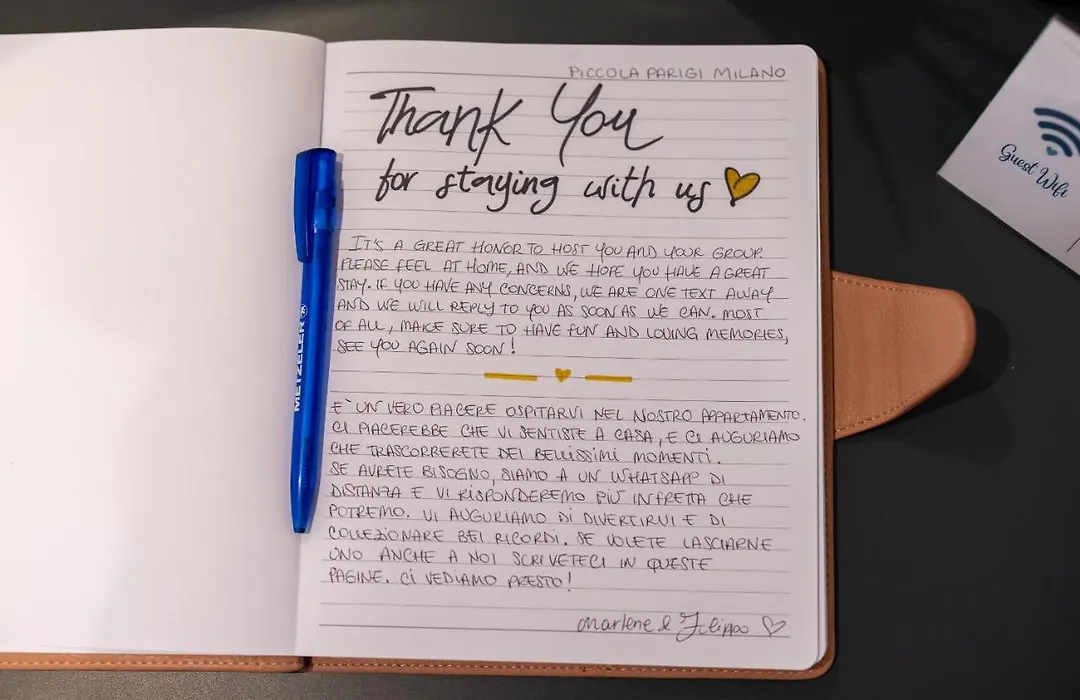 PICCOLA PARIGI MILANO
Thank You
for staying with us
IT'S A GREAT HONOR TO HOST YOU AND YOUR GROUP.
PLEASE FEEL AT HOME, AND WE HOPE YOU HAVE A GREAT
STAY. IF YOU HAVE ANY CONCERNS, WE ARE ONE TEXT AWAY
AND WE WILL REPLY TO YOU AS SOON AS WE CAN. MOST
OF ALL, MAKE SURE TO HAVE FUN AND LOVING MEMORIES,
SEE YOU AGAIN SOON!
E' UN VERO PIACERE OSPITARVI NEL NOSTRO APPARTAMENTO.
CI PIACEREBBE CHE VI SENTISTE A CASA, E CI AUGURIAMO
CHE TRASCORRERETE DEI BELLISSIMI MOMENTI.
SE AVRETE BISOGNO, SIAMO A UN WHATSAPP DI
DISTANZA E VI RISPONDEREMO PIÙ IN FRETTA CHE
POTREMO. VI AUGURIAMO DI DIVERTIRVI E DI
COLLEZIONARE BEI RICORDI. SE VOLETE LASCIARNE
UNO ANCHE A NOI SCRIVETECI IN QUESTE
PAGINE. CI VEDIAMO PRESTO!
Marlene e Filippo
METZELER
Guest Wifi